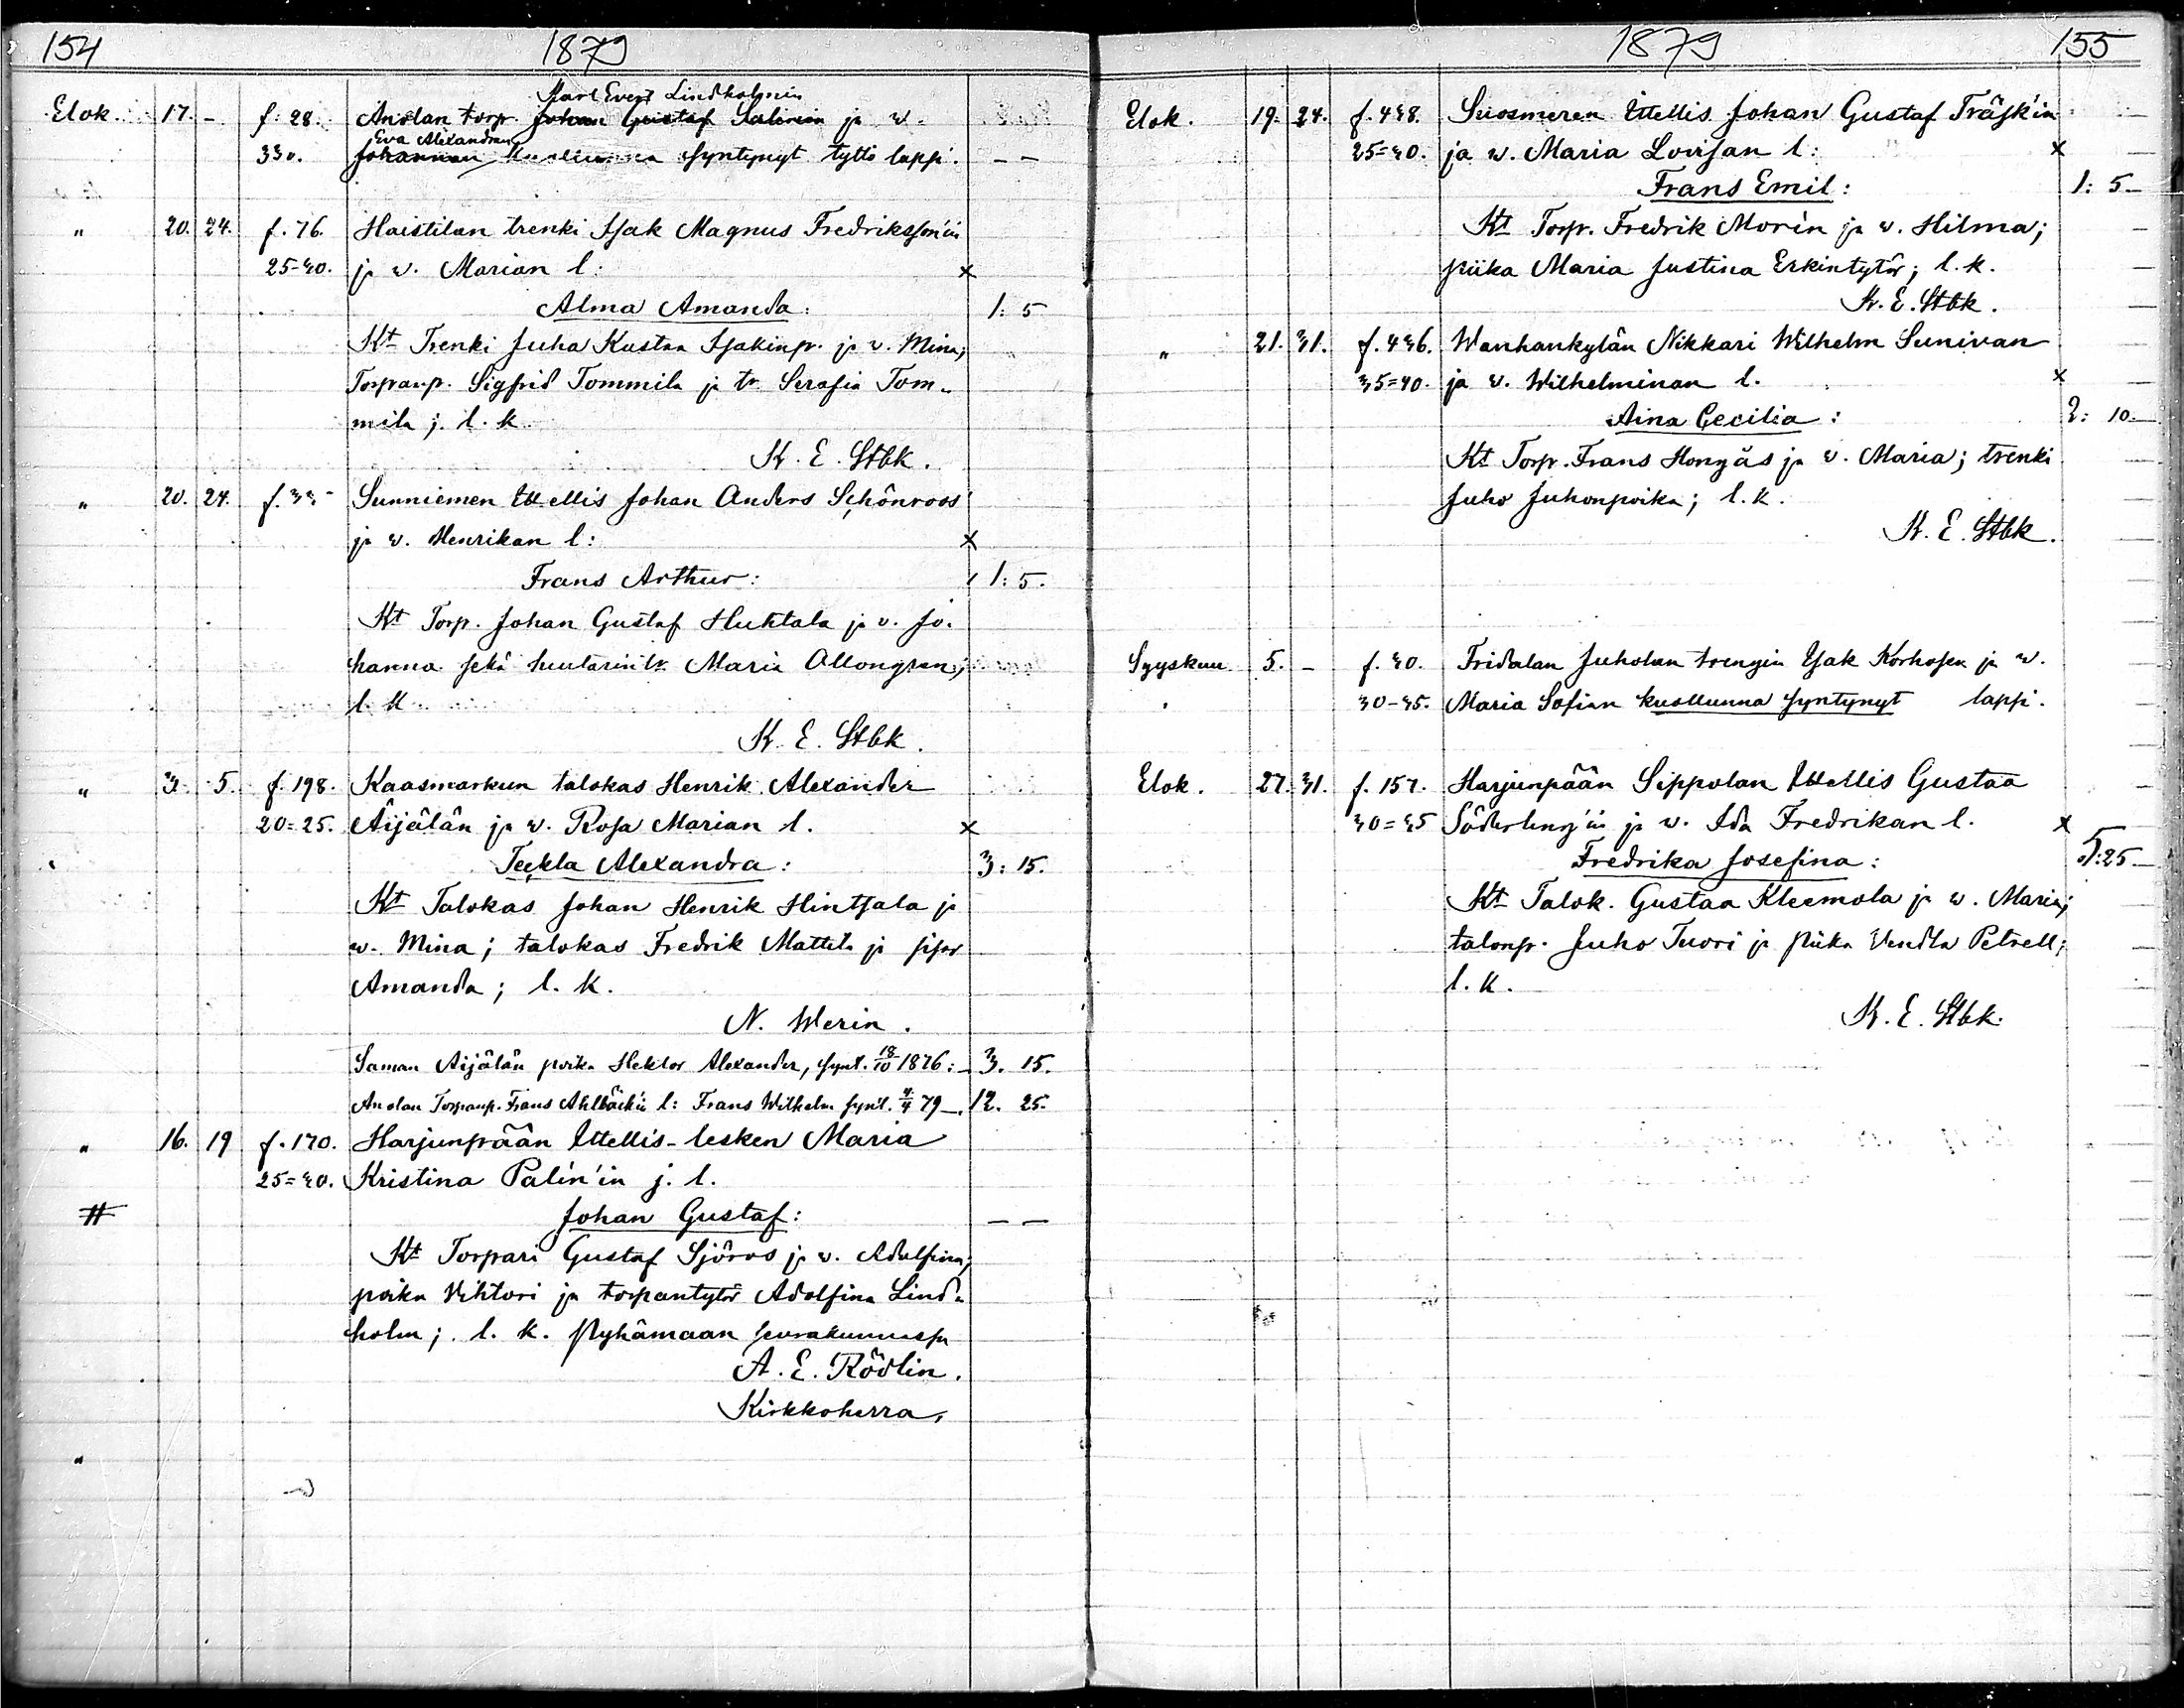 154 1879
Karl Evert Lindholmin
Elok. 17. - f. 28. Anolan torp. Johan Gustaf Salinin ja w.
Eva Alexandran
330. Johannan kuollunna syntynyt tyttö lapsi. - -
" 20. 24. f. 76. Haistilan trenki Isak Magnus Fredriksson'in
25-30. ja w. Marian l: x
Alma Amanda: 1: 5
Kt Trenki Juha Kustaa Isakinp. ja v. Mina;
Torpanp. Sigfrid Tommila ja tr. Serafia Tom-
mila; l. k.
K. E. Stbk.
" 20. 24. f. 33- Sunniemen Ittellis Johan Anders Schönroos
ja w. Henrikan l: x
Frans Arthur: 1: 5.
Kt Torp. Johan Gustaf Huhtala ja v. Jo-
hanna sekä suutarin tr. Maria Allongren;
l. k
K. E. Stbk.
" 3. 5. f. 198. Kaasmarkun talokas Henrik Alexander
20=25. Äijälän ja w. Rosa Marian l. x
Teckla Alexandra: 3: 15.
Kt Talokas Johan Henrik Hintsala ja
w. Mina; talokas Fredrik Mattila ja sisar
Amanda; l. k.
N. Werin.
Saman Äijälän poika Hektor Alexander, synt. 18/10 1876: - 3. 15.
Anolan Torpanp. Frans Ahlbäck'in l: Frans Wilhelm synt. 4/4 79 -. 12. 25.
" 16. 19 f. 170. Harjunpään Ittellis-lesken Maria
25=30. Kristina Palin'in j. l.
# Johan Gustaf: - -
Kt Torpari Gustaf Sjöros ja w. Adolfina;
poika Vihtori ja torpantytär Adolfina Lind-
holm; l. k. Pyhämaan seurakunnassa
A. E. Rödlin.
Kirkkoherra.
"
1879 155
Elok. 19. 24. f. 438. Suosmeren Ittellis Johan Gustaf Träsk'in
25=30. ja w. Maria Lovisan l: x
Frans Emil: 1: 5-
Kt Torp. Fredrik Morin ja v. Hilma;
piika Maria Justina Erkintytär; l. k.
K. E. Stbk.
" 21. 31. f. 436. Wanhankylän Nikkari Wilhelm Sunivan
35=40. ja v. Wilhelminan l. x
Aina Cecilia: 2: 10.
Kt Torp. Frans Hongäs ja v. Maria; trenki
Juho Juhonpoika; l. k.
K. E. Stbk.
Syyskuu 5. - f. 30. Fridalan Juholan trengin Isak Korhosen ja w.
30-35. Maria Sofian kuollunna syntynyt lapsi.
Elok. 27. 31. f. 157. Harjunpään Sippolan Ittellis Gustaa
30=35 Söderling'in ja w. Ida Fredrikan l. x
Fredrika Josefina: 5:25-
Kt Talok. Gustaa Kleemola ja w. Maria;
talonp. Juho Tuori ja piika Vendla Petrell;
l. k.
K. E. Stbk.